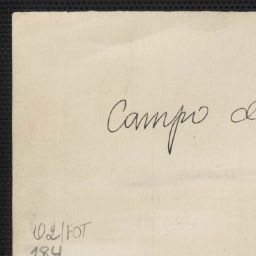 Campo d
02/FOT
184